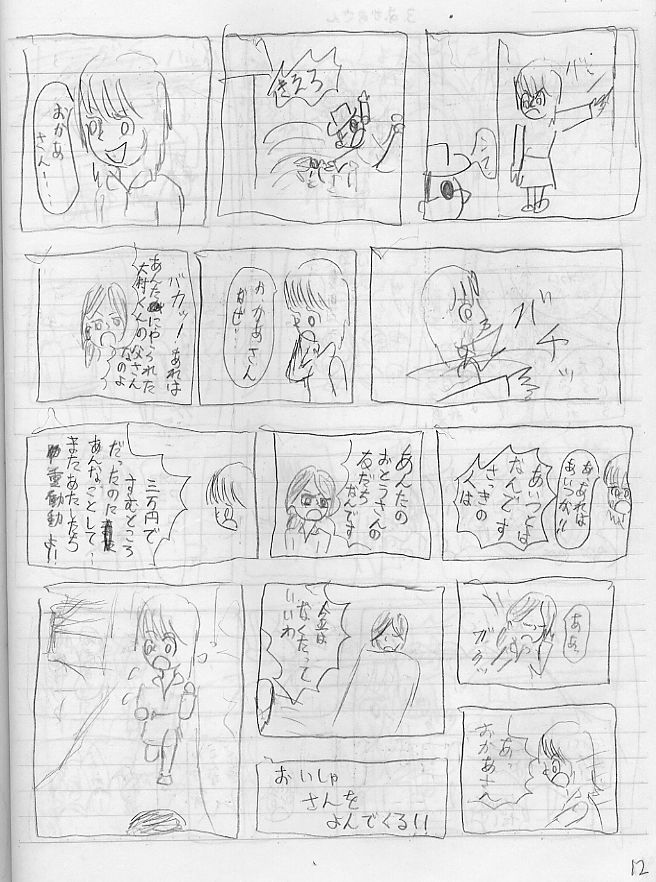 バシ
シーン
きえろ
おかあ
さん・・・
バチッ
おかあさん
なぜ・・
バカッ!あれは
あんたにやられた
大村くんの父さん
なのよ
あ、あれは
あいつが!!
あいつとは
なんです
さっきの
人は
あんたの
おとうさんの
友だち
なんです
三万円で
すむところ
だったのに
あんなことして・・
またあたしたち
重働動よ!!
ああ
ガクッ
あっ
おかあさん
金は
なくたって
いいわ
おいしゃ
さんを
よんでくる!!
12